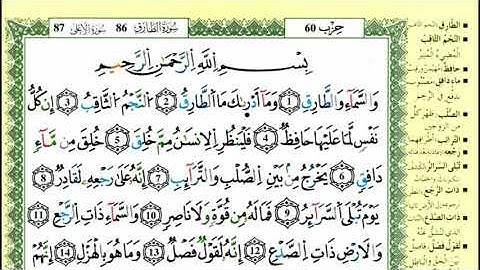 حِزْب 60
سُورَةُ الطَّارِق 86
سُورَةُ الأَعْلَى 87
بِسْمِ اللَّهِ الرَّحْمَٰنِ الرَّحِيمِ
وَالسَّمَاءِ وَالطَّارِقِ 1 وَمَا أَدْرَىٰكَ مَا الطَّارِقُ 2 النَّجْمُ الثَّاقِبُ 3 إِن كُلُّ
نَفْسٍ لَّمَّا عَلَيْهَا حَافِظٌ 4 فَلْيَنظُرِ الْإِنسَٰنُ مِمَّ خُلِقَ 5 خُلِقَ مِن مَّاءٍ
دَافِقٍ 6 يَخْرُجُ مِن بَيْنِ الصُّلْبِ وَالتَّرَائِبِ 7 إِنَّهُ عَلَىٰ رَجْعِهِ لَقَادِرٌ 8
يَوْمَ تُبْلَى السَّرَائِرُ 9 فَمَا لَهُ مِن قُوَّةٍ وَلَا نَاصِرٍ 10 وَالسَّمَاءِ ذَاتِ الرَّجْعِ 11
وَالْأَرْضِ ذَاتِ الصَّدْعِ 12 إِنَّهُ لَقَوْلٌ فَصْلٌ 13 وَمَا هُوَ بِالْهَزْلِ 14 إِنَّهُمْ
الطَّارِق
النَّجْمُ الثَّاقِبُ
حافظ
ماء دافق
الصُّلْب
التَّرائب
رَجْعِه
تُبلى السَّرائر
ذات الرَّجْع
ذات الصَّدْع
لقول فصل